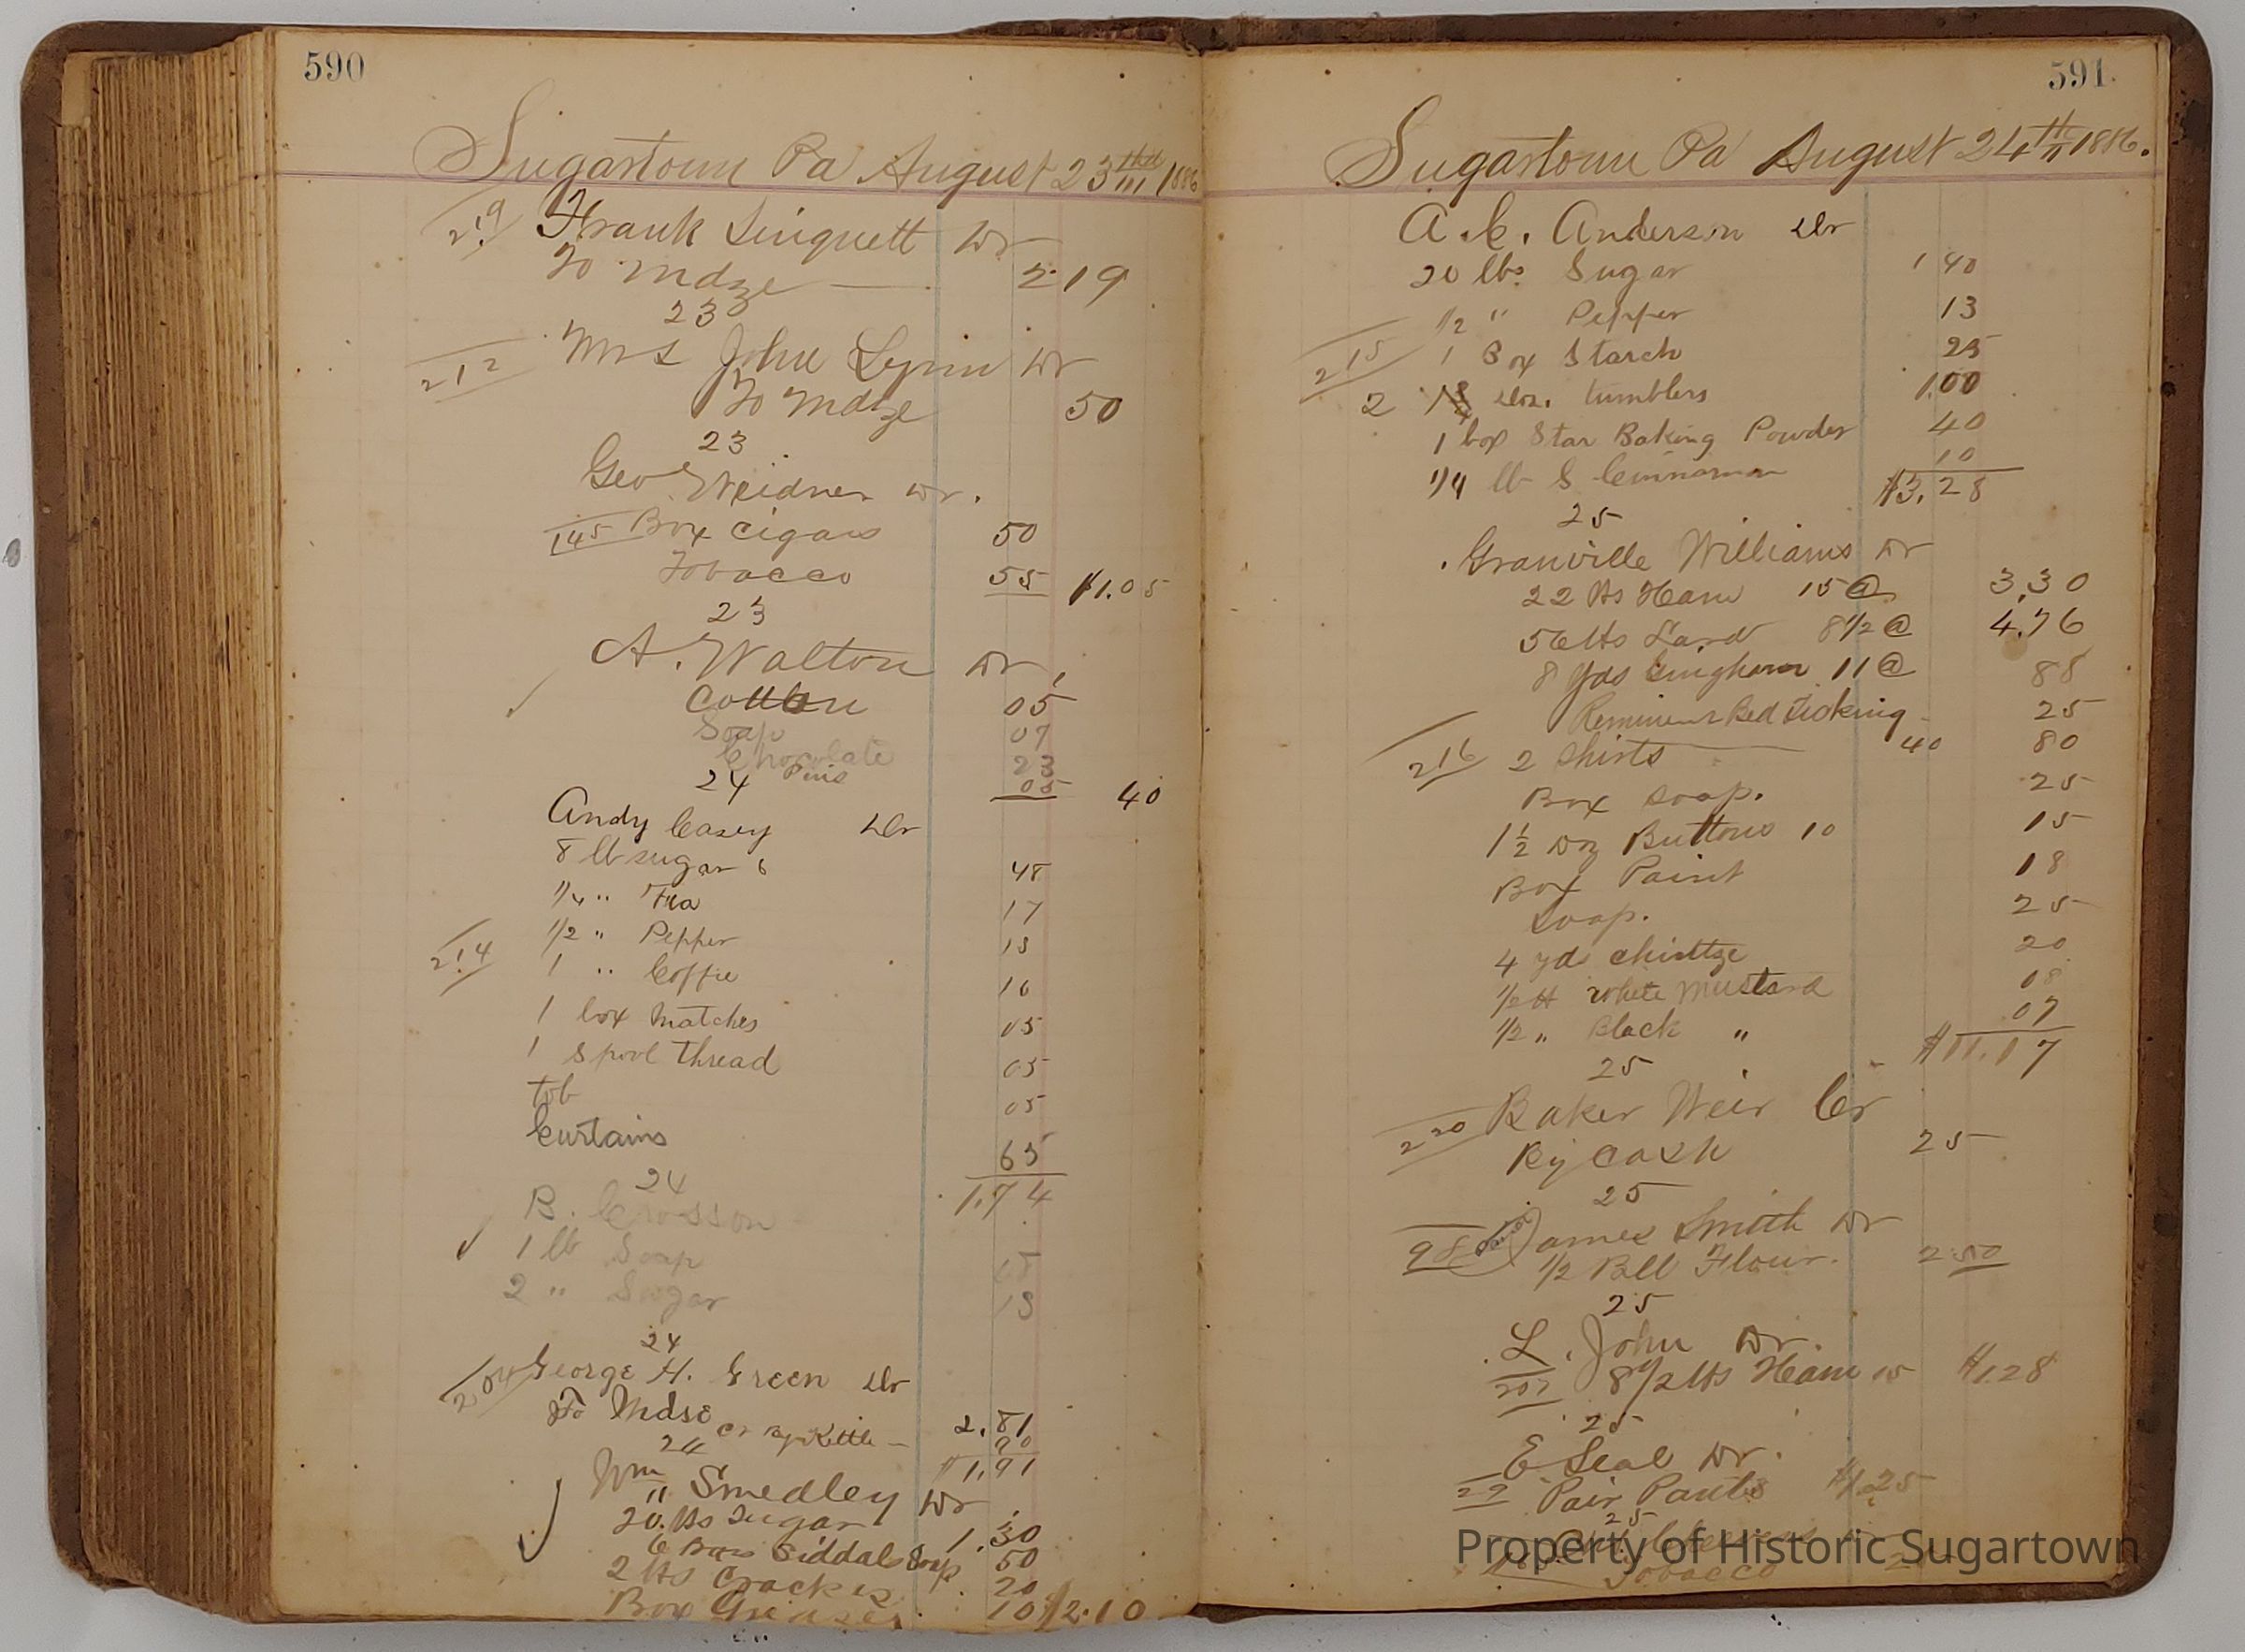 590
Sugartown Pa August 23 1886
219 Frank Linquett Dr
To Mdze 2.19
23
212 Mrs John Lynn Dr
To Mdze 50
23
Geo Weidner Dr.
145 Box Cigars 50
Tobacco 55 $1.05
23
A. Walton Dr
Cotton 05
Soap 07
Chocolate 23
24 Pins 05 40
Andy Casey Dr
8 lb sugar 6 48
1/4 " Tea 17
214 1/2 " Pepper 13
1 " Coffie 16
1 box Matches 05
1 Spool thread 05
tob 05
Curtains 65
24 1.74
B. Crosson
1 lb Soap
2 " Sugar 13
24
204 George H. Green Dr
To Mdse 2.81
Cr by Kettle 90
24 $1.91
Wm Smedley Dr
20 lbs Sugar 1.30
6 Bars Siddals Soap 50
2 lbs Crackers 20
Box 10 $2.10
591
Sugartown Pa August 24th 1886.
A. C. Anderson Dr
20 lbs Sugar 1 40
1/2 " Pepper 13
215 1 Box Starch 25
2 doz. tumblers 1.00
1 box Star Baking Powder 40
1/4 lb S Cinnamon 10
$3.28
25
Granville Williams Dr
22 lbs Ham 15 @ 3.30
56 lbs Lard 8 1/2 @ 4.76
8 yds Gingham 11 @ 88
Bed Ticking 25
216 2 Shirts 40 80
Box Soap. 25
1 1/2 Dz Buttons 10 15
Box Paint 18
Soap. 25
4 yds chinttze 20
1/2 lb White Mustard 08
1/2 " Black " 07
25 $11.17
220 Baker Weir Cr
By Cash 25
25
98 James Smith Dr
1/2 Bll Flour. 2.50
25
L. John Dr.
207 8 1/2 lbs Ham 15 $1.28
25
E Seal Dr.
29 Pair Pants $1.25
25
Tobacco
Property of Historic Sugartown